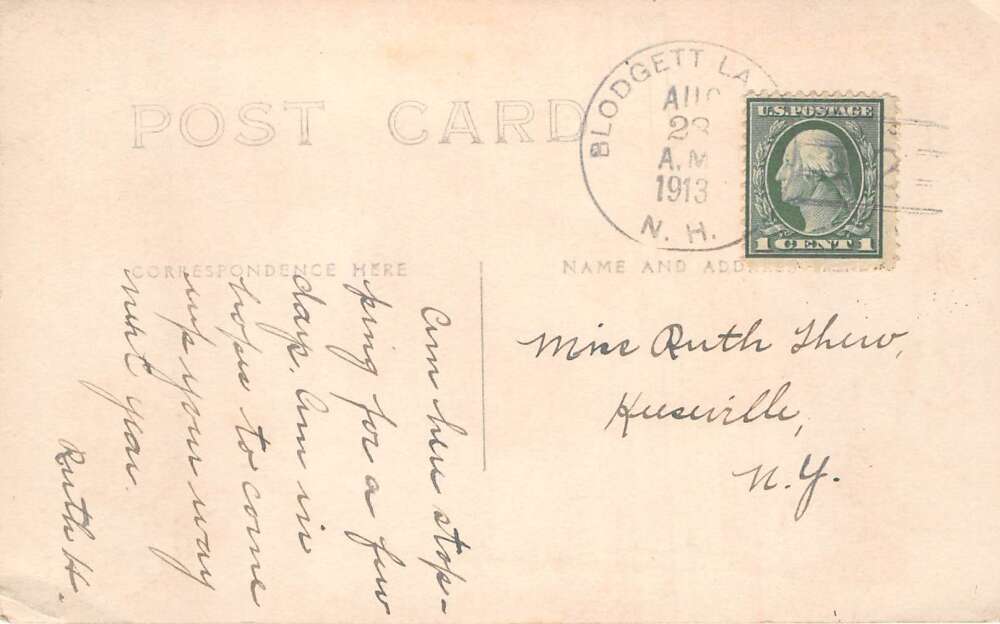 POST CARD
BLODGETT LA
AUG
28
A.M.
1913
N. H.
U.S. POSTAGE
1 CENT 1
CORRESPONDENCE HERE
NAME AND ADDRESS HERE
Am here stop-
ping for a few
days. Am in
hopes to come
up your way
next year.
Ruth H.
Miss Ruth Thew,
Keeseville,
N.Y.